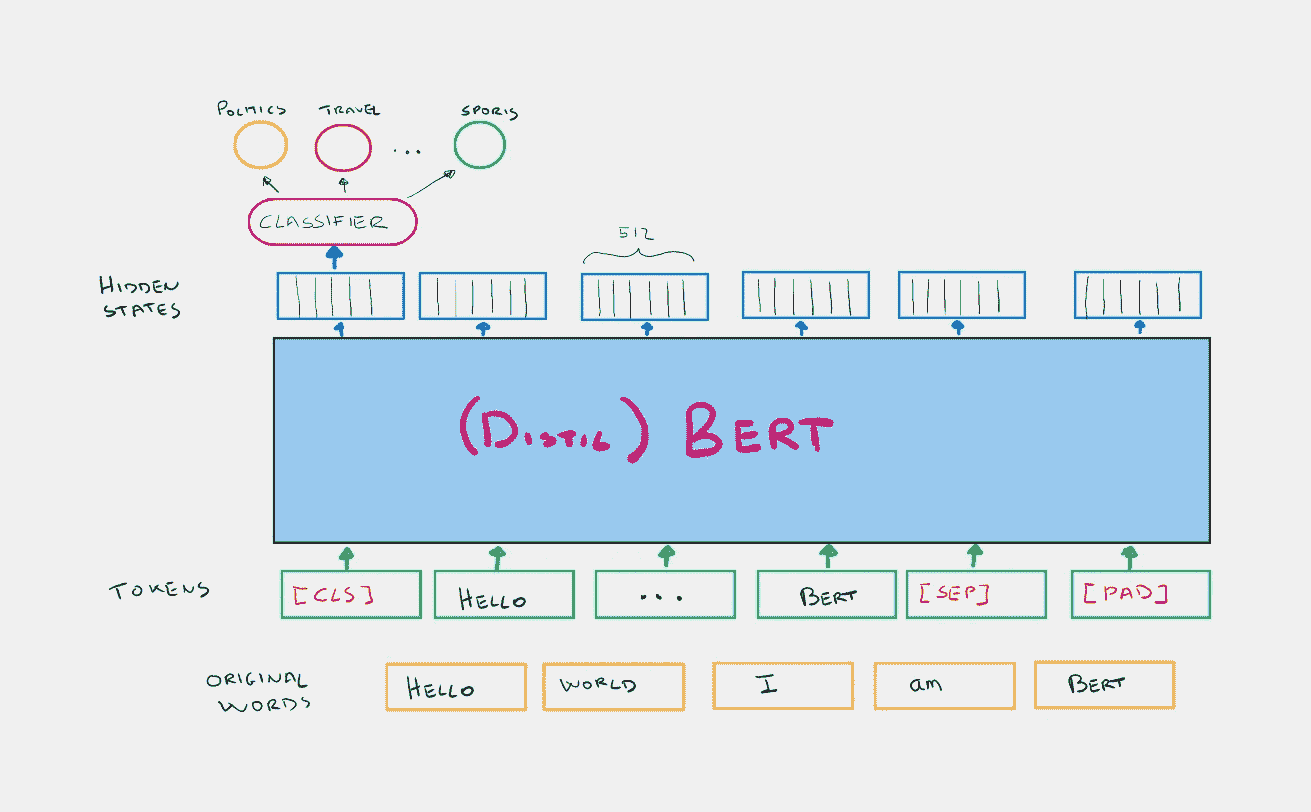 POLITICS TRAVEL SPORTS
...
CLASSIFIER
512
HIDDEN
STATES
(DISTIL) BERT
TOKENS [CLS] HELLO ... BERT [SEP] [PAD]
ORIGINAL
WORDS
HELLO WORLD I am BERT